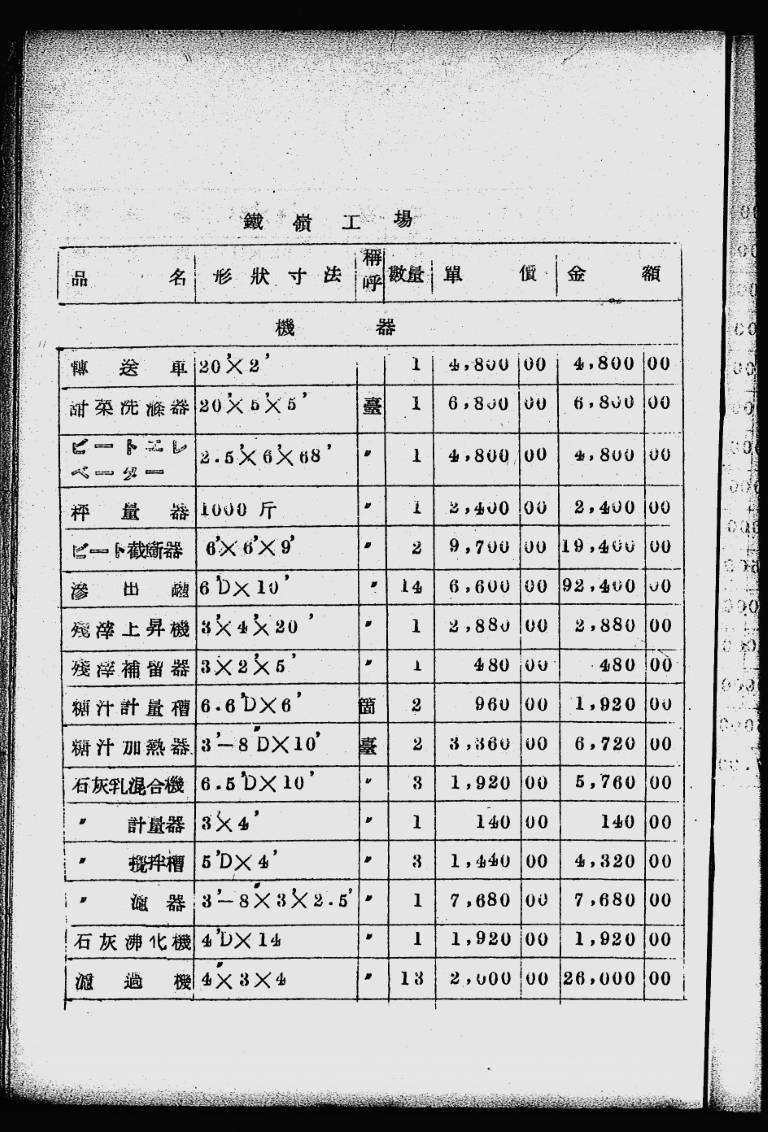 鐵嶺工場
品名 形狀寸法 稱呼 數量 單價 金額
機器
傳送車 20'×2' 1 4,800 00 4,800 00
甜菜洗滌器 20'×5'×5' 臺 1 6,800 00 6,800 00
ビートエレベーター 2.5'×6'×68' 〃 1 4,800 00 4,800 00
秤量器 1000斤 〃 1 2,400 00 2,400 00
ビート截斷器 6'×6'×9' 〃 2 9,700 00 19,400 00
滲出器 6'D×10' 〃 14 6,600 00 92,400 00
殘滓上昇機 3'×4'×20' 〃 1 2,880 00 2,880 00
殘滓補留器 3×2'×5' 〃 1 480 00 480 00
糖汁計量槽 6.6'D×6' 箇 2 960 00 1,920 00
糖汁加熱器 3'—8"D×10' 臺 2 3,360 00 6,720 00
石灰乳混合機 6.5'D×10' 〃 3 1,920 00 5,760 00
〃 計量器 3'×4' 〃 1 140 00 140 00
〃 攪拌槽 5'D×4' 〃 3 1,440 00 4,320 00
〃 濾器 3'—8"×3'×2.5' 〃 1 7,680 00 7,680 00
石灰沸化機 4'D×14 〃 1 1,920 00 1,920 00
濾過機 4"×3×4 〃 13 2,000 00 26,000 00